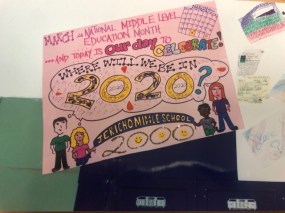 MARCH is NATIONAL MIDDLE LEVEL
EDUCATION MONTH
...AND TODAY IS OUR DAY TO CELEBRATE!
WHERE WILL WE BE IN
2020?
JERICHO MIDDLE SCHOOL
2000